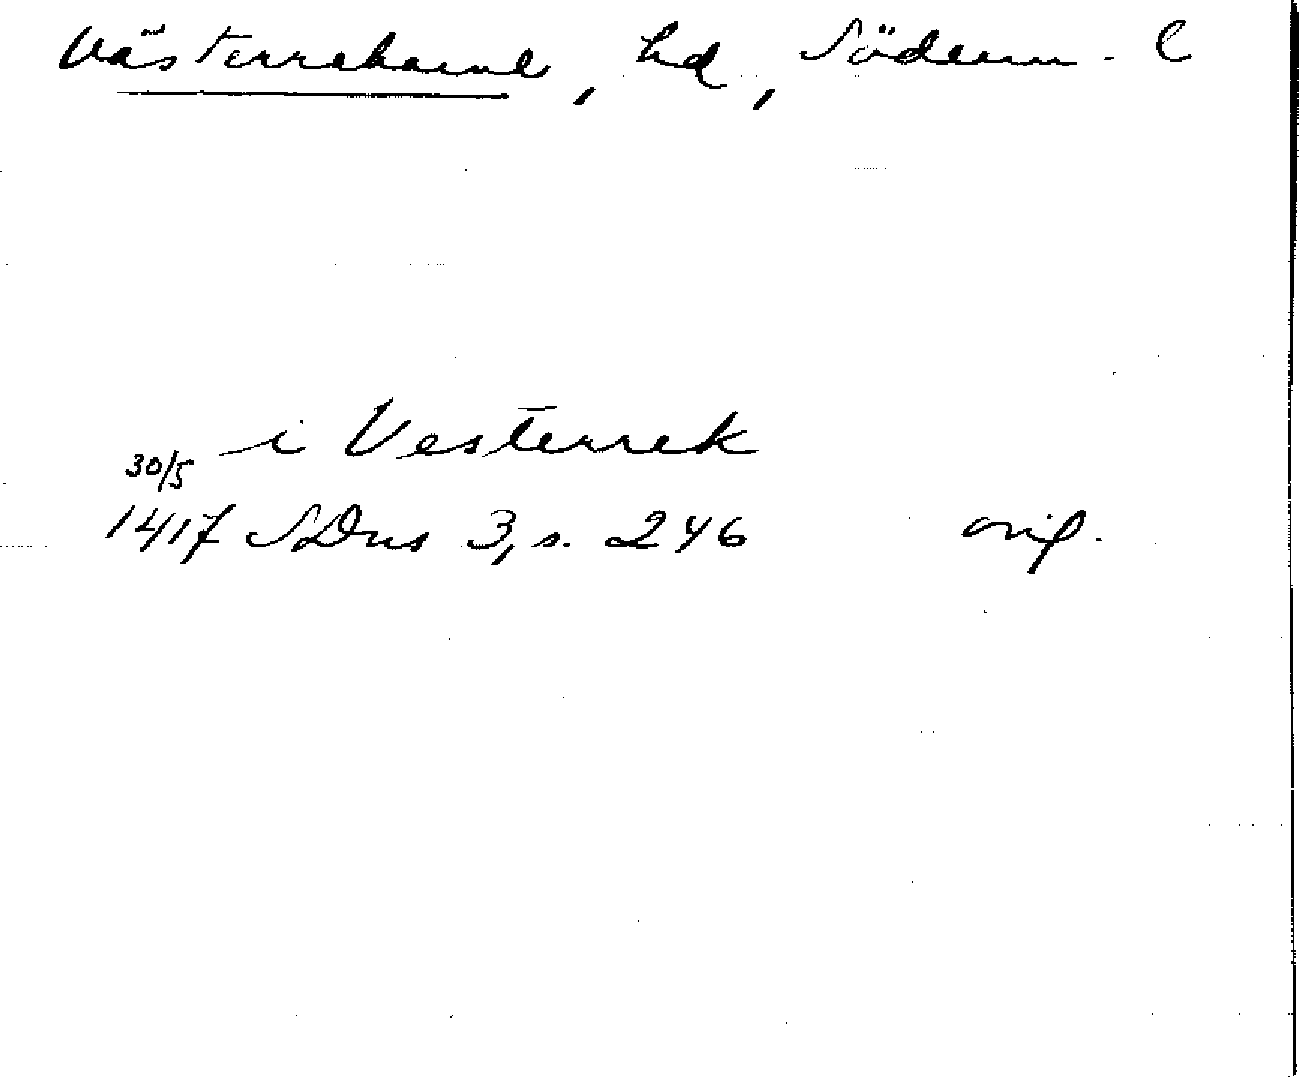 Västerrekarne, hd, Söderm. l
i Vesterrek
30/5
1417 SDns 3, s. 246 orig.